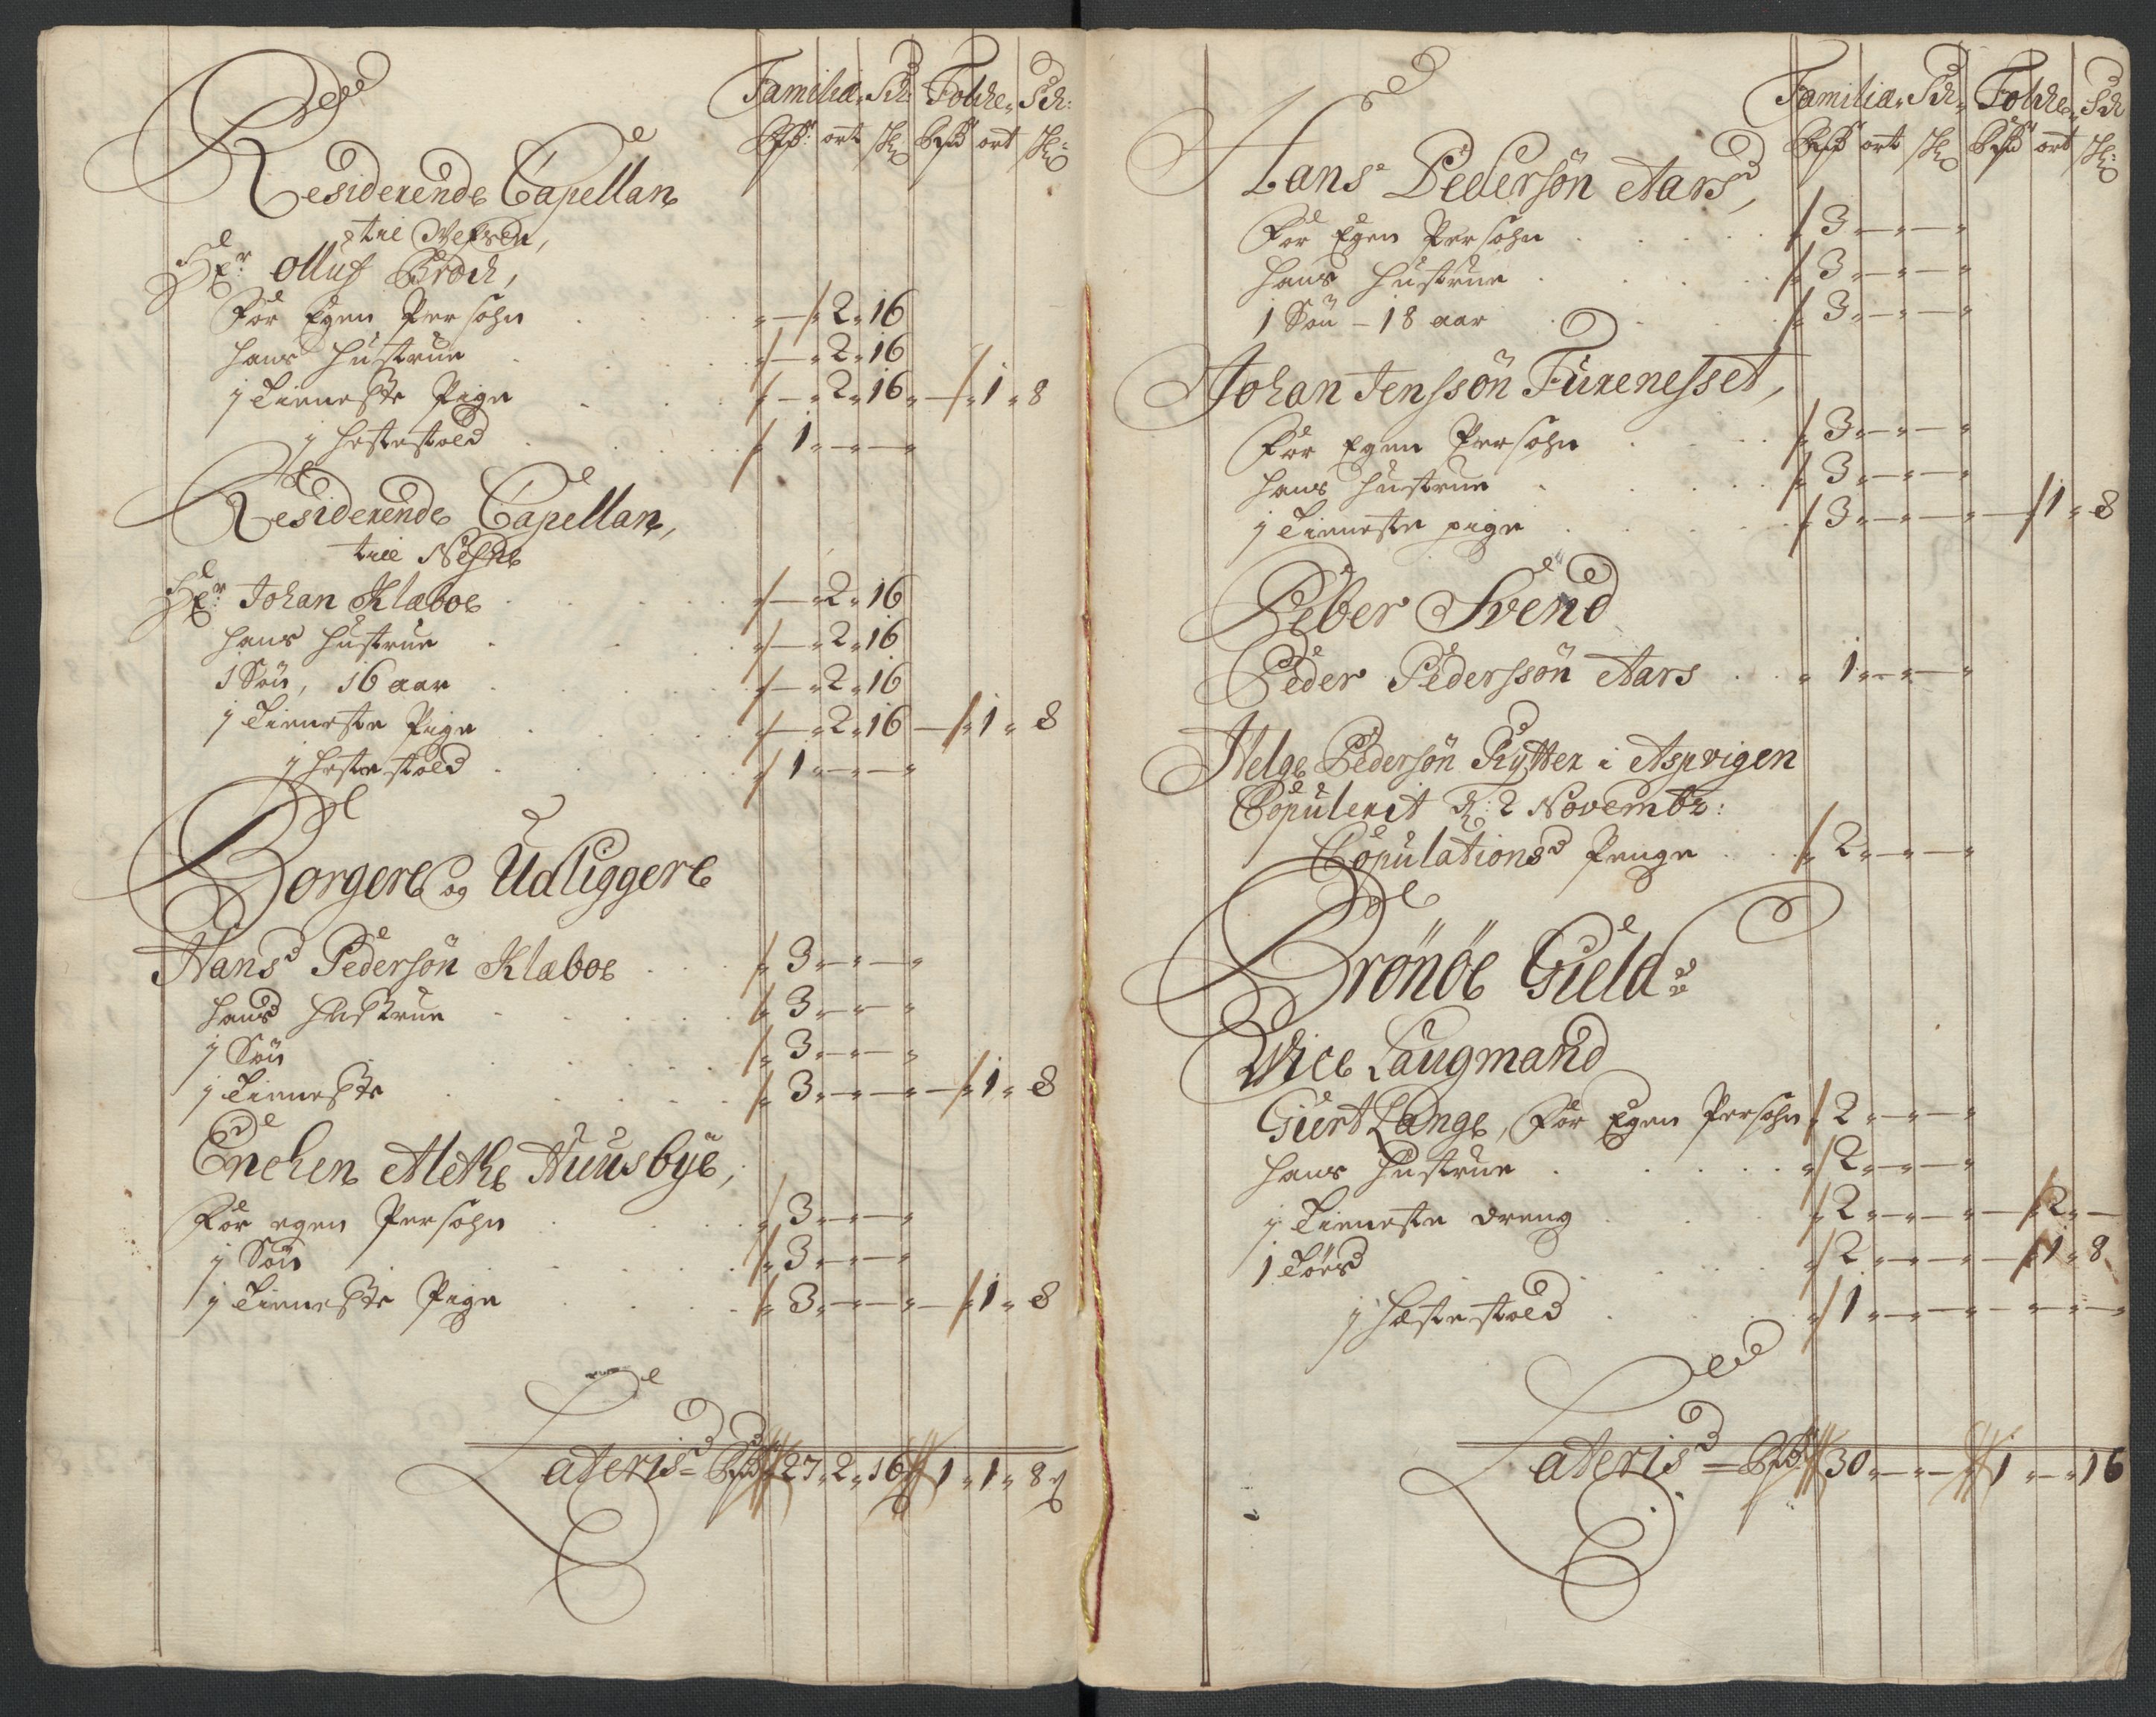 Familiæ„ Sch: Folche„ Sch:
Rdr: ort sk: Rdr ort sk:
Residerende Capellan
til Vefsen,
Hr: Olluf Broch,
For Egen Persohn „ — „ 2 „ 16
hans hustrue „ — „ 2 „ 16
1 Tieneste Pige „ — „ 2 „ 16 „ — „ 1 „ 8
1 hestetold „ 1 „ — „ — „
Residerende Capellan,
till Nesne
Hr: Johan Klæboe „ — „ 2 „ 16
hans hustrue „ — „ 2 „ 16
1 Søn, 16 aar „ — „ 2 „ 16
1 Tieneste Pige „ — „ 2 „ 16 — „ 1 „ 8
1 hestetold „ 1 „ — „ — „
Borgere og Udliggere
Hans Pedersøn Klæboe „ 3 „ — „ — „
hans hustrue „ 3 „ — „ — „
1 Søn „ 3 „ — „ — „
1 Tieneste „ 3 „ — „ — „ — „ 1 „ 8
Enchen Alethe Huusbye,
For egen Persohn „ 3 „ — „ — „
1 Søn „ 3 „ — „ — „
1 Tieneste Pige „ 3 „ — „ — „ — „ 1 „ 8
Lateris = Rdr 27 „ 2 „ 16 „ 1 „ 1 „ 8
Familiæ„ Sch„ Folche„ Sch
Rdr ort sk: Rdr ort sk:
Hans Pedersøn Aars,
For Egen Persohn „ 3 „ — „ — „
hans hustrue „ 3 „ — „ — „
1 Søn – 18 aar „ 3 „ — „ — „
Johan Jenssøn Furenesset,
For Egen Persohn „ 3 „ — „ — „
hans hustrue „ 3 „ — „ — „
1 Tieneste pige „ 3 „ — „ — „ — „ 1 „ 8
Peber Svend
Peder Pederssøn Aars „ 1 „ — „ — „
Helge Pedersøn Rytter i Aspvigen
Copulerit d: 2 Novembr:
Copulations Penge „ 2 „ — „ — „
Brönöe Gield
Vice Laugmand
Giert Lange, For Egen Persohn „ 2 „ — „ — „
hans hustrue „ 2 „ — „ — „
1 Tieneste dreng „ 2 „ — „ — „ — „ 2 „ —
1 Tøes „ 2 „ — „ — „ — „ 1 „ 8
1 hestetold „ 1 „ — „ — „ — „ — „ — „
Lateris = Rdr 30 „ — „ — „ 1 „ — „ 16